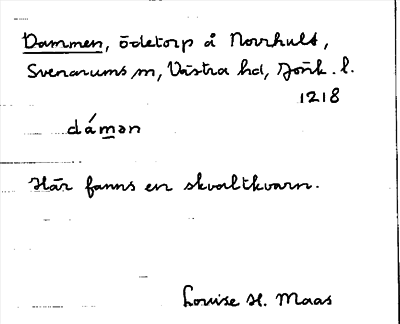 Dammen, ödetorp å Norrhult,
Svenarums sn, Västra hd, Jönk. l.
1218
dámən
Här fanns en skvaltkvarn.
Louise H. Maas